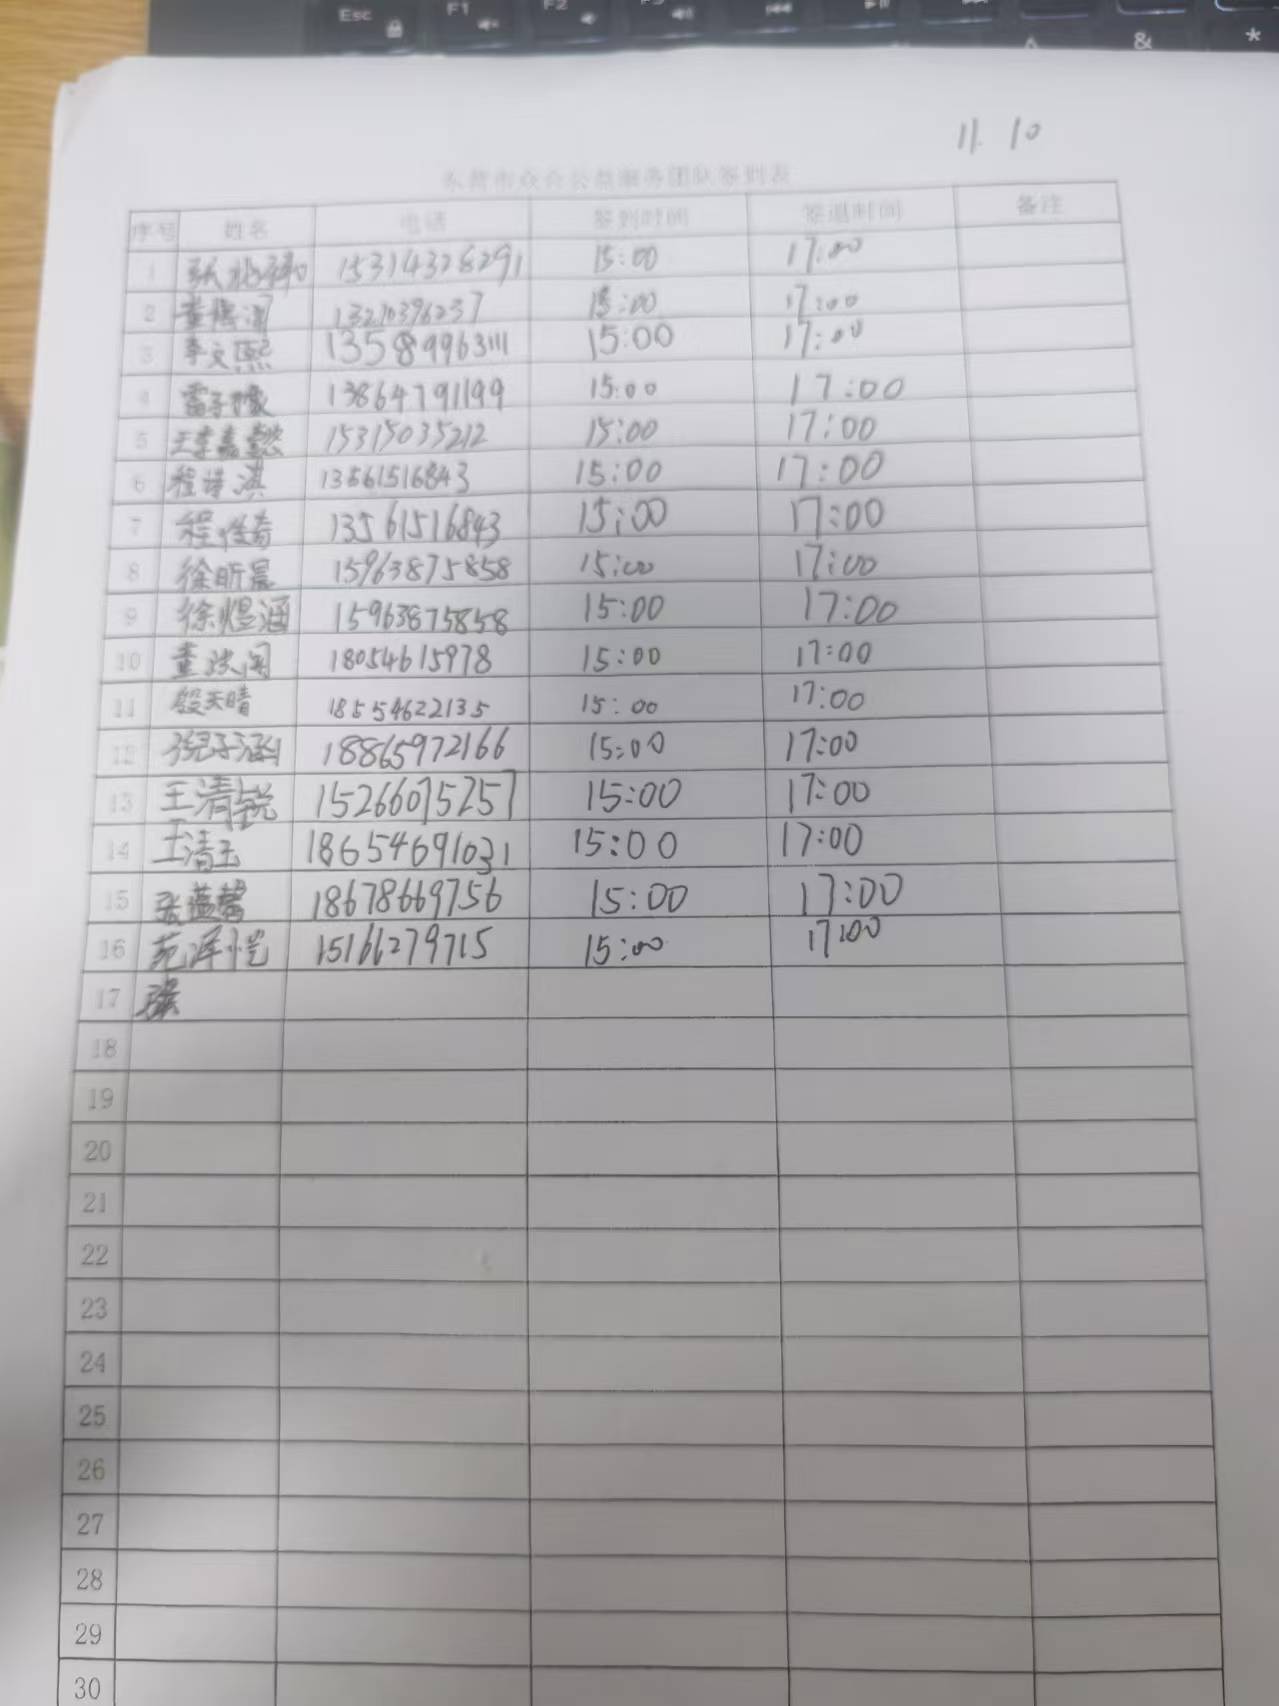 Esc F1 F2
& *
11. 10
东营市众合公益服务团队签到表
序号 姓名 电话 签到时间 签退时间 备注
1 15314328291 15:00 17:00
2 13210396237 15:00 17:00
3 李文熙 13589963111 15:00 17:00
4 雷子檬 13864791199 15:00 17:00
5 王李嘉懿 15315035212 15:00 17:00
6 程诗淇 13561516843 15:00 17:00
7 程俊奇 13561516843 15:00 17:00
8 徐昕晨 15963875858 15:00 17:00
9 徐煜涵 15963875858 15:00 17:00
10 18054615978 15:00 17:00
11 殷天晴 18554622135 15:00 17:00
12 倪子涵 18865972166 15:00 17:00
13 王清锐 15266075257 15:00 17:00
14 王清玉 18654691031 15:00 17:00
15 张蕴馨 18678669756 15:00 17:00
16 范泽恺 15166279715 15:00 17:00
17
18
19
20
21
22
23
24
25
26
27
28
29
30